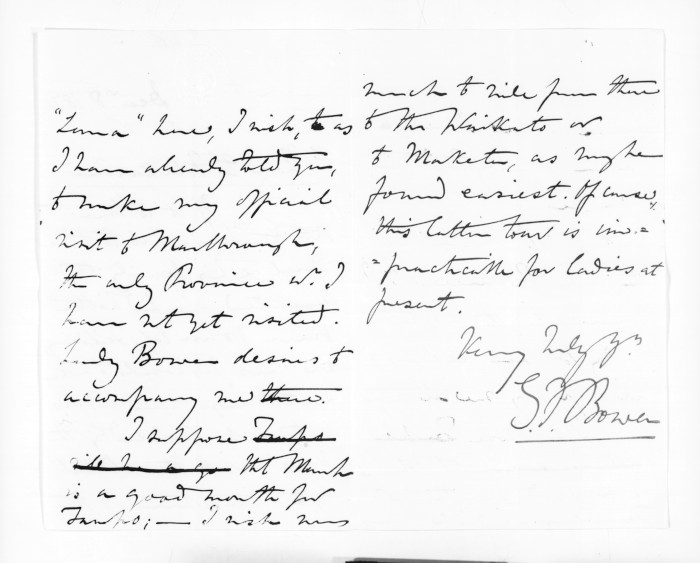 "Luna" here, I wish, to as
I have already told you,
to make my official
visit to Marlborough,
the only Province wh. I
have not yet visited.
Lady Bowen desires to
accompany me there.
I suppose Taupo
that March
is a good month for
Taupo; — I wish very
much to ride from there
to the Waikato or
to Maketu, as may be
found easiest. Of course,
this latter tour is im-
-practicable for ladies at
present.
Very truly yrs
G.F. Bowen